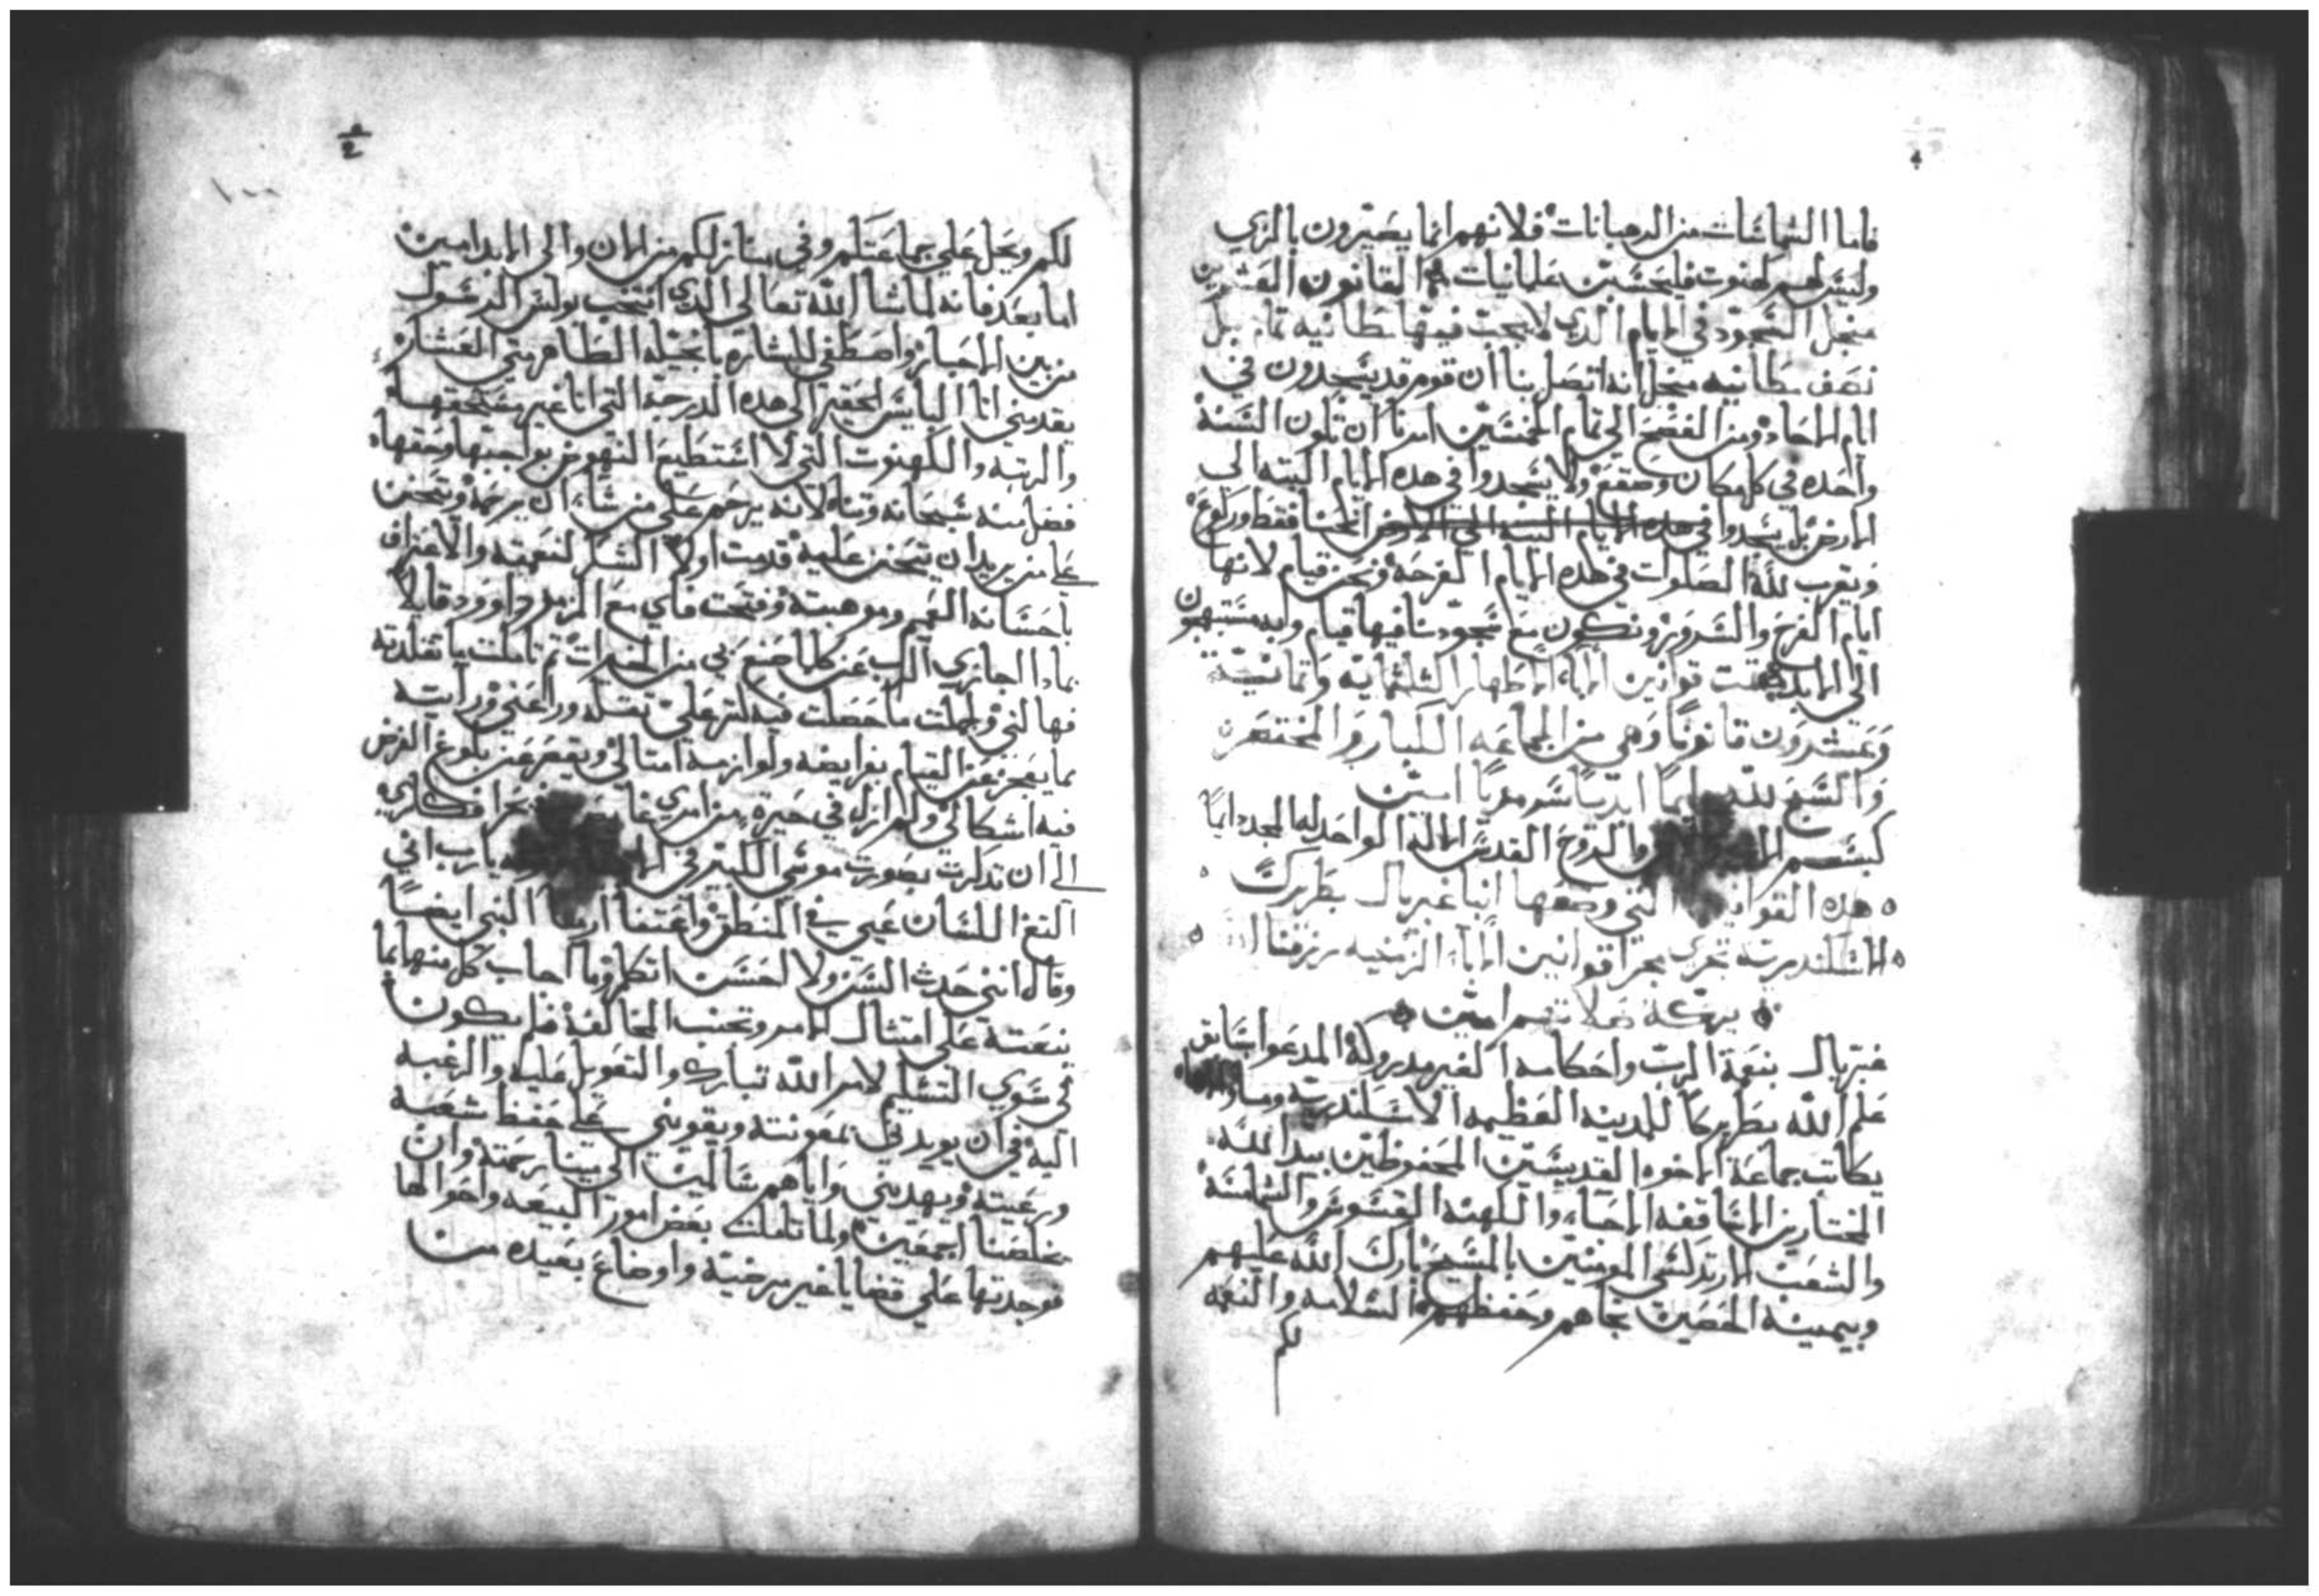 4
فاما الشماسات من الرهبانات فلانهم انما يصيرون بالزي
وليس لهم كهنوت فليحسبن علمانيات القانون العشرين
منجل السجود في الايام الذي لا يجب فيها مطانيه تامه بل
نصف مطانيه منجل انه اتصل بنا ان قوم قد يسجدون في
ايام الاحاد ومن الفصح الي تمام الخمسين امرنا ان تكون السنة
واحده في كل مكان وصقع ولا يسجدوا في هده الايام البته الي
الارض بل يسجدوا في هده الايام البته الي الارض انحنا فقط وركوع
ونقرب لله الصلوات في هده الايام الفرحه ونحن قيام لانها
ايام الفرح والسرور ونكون مع سجودنا فيها قيام وابه مبتهجون
الي الابد كملت قوانين الابا الاطهار الثلثمايه وثمانية
وعشرون قانونًا وهي من الجماعه الكبار والمختصر
والسبح لله دايمًا ابديًا سرمديًا امين
كبسم الاب والروح القدس الاله الواحد له المجد دايمًا
هده القوانين التي وضعها انبا غبريال بطريرك
الاسكندريه تجري مجرا قوانين الابا الزمنيه رزقنا الله
بركة صلاتهم امين
غبريال بنعمة الرب واحكامه الغير مدروكه المدعوا بسابق
علم الله بطريركًا للمدينه العظيمه الاسكندريه وما
يكاتب جماعة الاخوه القديسين المحفوظين بيد الله
المختارين الاساقفه الاحباء والكهنه القسوس والشمامسة
والشعب الارتدكسي المومنين بالمسيح بارك الله عليهم
وبيمينه الحصين نجاهم وحفظهم السلامه والنعمه
لكم
2
١٠٠
لكم ويحل علي جماعتكم وفي منازلكم من الان والي الابد امين
اما بعد فانه لما شا الله تعالي الذي انتخب بولس الرسول
من بين الاحبار واصطفي للبشاره بانجيله الطاهر متي العشار
بقدمني انا البايس الحقير الي هده الدرجة التي انا غير مستحقها
والرتبه والكهنوت التي لا استطيع النهوض بواجبها وحقها
فضل منه سبحانه وتناه لانه يرحم علي من شاء ان يرحمه ويتحنن
علي من يريد ان يتحنن عليه قدمت اولاً الشكر لنعمته والاعتراف
باحسانه العميم وموهبته وفتحت فاي مع المزمور داوود قايلا
بماذا اجازي الرب عن كلما صنع بي من الخيرات ثم تاملت ما تقلدته
فهالني وجملت ما حصلت فيه لتر علي ثقله وراعني ورايت
مما يعجز عن القيام بفرايضه ولوازمه امتالي ويقصر عن بلوغ الغرض
فيه اشكالي ولم ازل في حيرة من امري افكاري
الي ان تذكرت بصورت موسي الكبير في يارب اني
التغ اللسان عيي في المنطق واعتفا ارميا النبي ايضًا
وقال انني حدث السن ولا احسن اتكلم وما اجاب كل منها بما
بنعته علي امتثال الامر وتجنب المخالفة فلم يكون
لي سوي التسليم لامر الله تبارك والتعويل عليه والرغبه
اليه في ان يويدني بمعونته ويقويني علي حفظ شعبه
ورعيته ويهديني واياهم سالمين الي بيننا برحمته وان
يخلصنا اجمعين ولما تاملت بعض امور البيعه واحوالها
فوجدتها علي قضايا غير مرضية واوضاع بعيده من